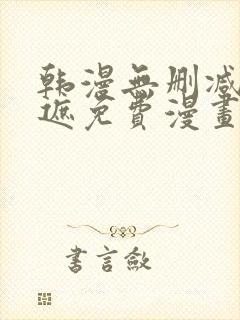 韩漫無刪减
遮免費漫畫
書言敘